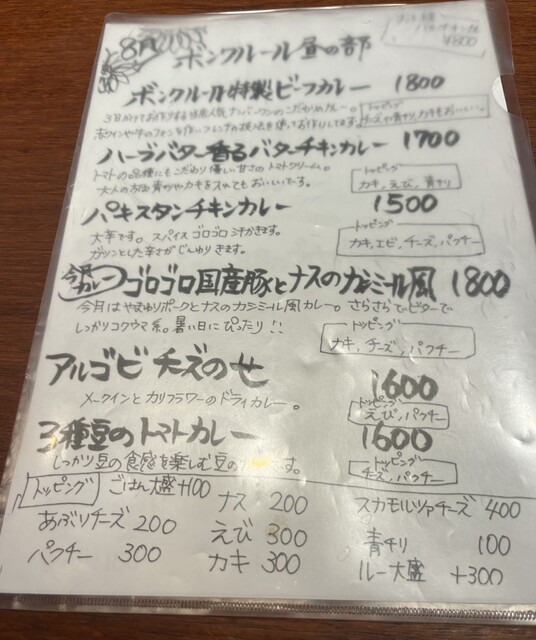 8月 ボンクルール 昼の部
¥800
ボンクルール特製ビーフカレー 1800
3日かけてお作りする当店人気ナンバーワンのこだわりカレー。
赤ワインや牛のフォンを使いフレンチの技法を使ってお作りしてます。
トッピング
チーズや青チリ、カキもおいしい。
ハーブバター香るバターチキンカレー 1700
トマトの品種にもこだわり優しい甘さのトマトクリーム。
大人の方は青チリやカキを入れてもおいしいです。
トッピング
カキ、えび、青チリ
パキスタンチキンカレー 1500
大辛です。スパイスゴロゴロ汗かきます。
ガツンとした辛さがじんわりきます。
トッピング
カキ、エビ、チーズ、パクチー
今月カレー ゴロゴロ国産豚とナスのカシミール風 1800
今月はやまゆりポークとナスのカシミール風カレー。さらさらでビターで
しっかりコクウマ系。暑い日にぴったり!!
トッピング
カキ、チーズ、パクチー
アルゴビ チーズのせ 1600
メークインとカリフラワーのドライカレー。
トッピング
えび、パクチー
3種豆のトマトカレー 1600
しっかり豆の食感を楽しむ豆の す。
トッピング
チーズ、パクチー
トッピング ごはん大盛+100 ナス 200 スカモルツァチーズ 400
あぶりチーズ 200 えび 300 青チリ 100
パクチー 300 カキ 300 ルー大盛 +300